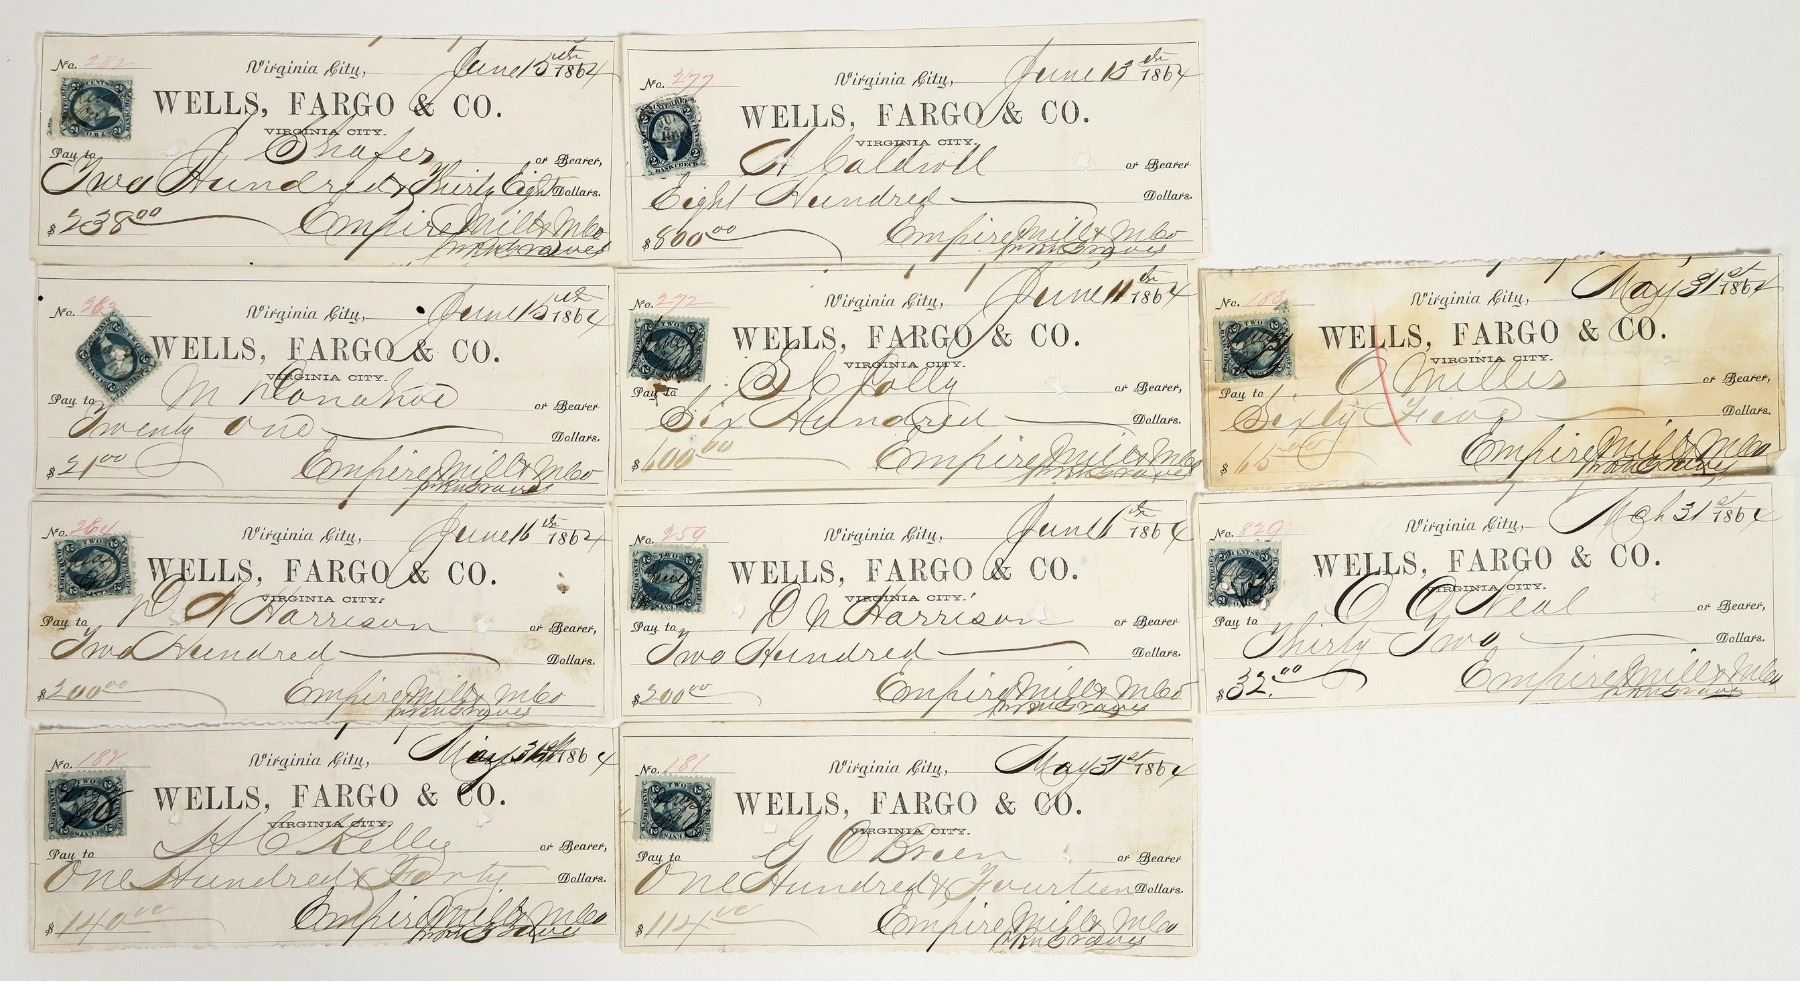 No. 282 Virginia City, June 15th 1864
WELLS, FARGO & CO.
VIRGINIA CITY.
Pay to J Shafer or Bearer,
Two Hundred & Thirty Eight Dollars.
$ 238.00 Empire Mill & M Co
No. 277 Virginia City, June 13th 1864
WELLS, FARGO & CO.
VIRGINIA CITY.
A Caldwell or Bearer
Eight Hundred Dollars.
$ 800.00 Empire Mill & M Co
No. 283 Virginia City, June 15th 1864
WELLS, FARGO & CO.
VIRGINIA CITY.
Pay to M Donahoe or Bearer
Twenty One Dollars.
$ 21.00 Empire Mill & M Co
No. 272 Virginia City, June 11th 1864
WELLS, FARGO & CO.
VIRGINIA CITY.
Pay to S C Jolly or Bearer,
Six Hundred Dollars.
$ 600.00 Empire Mill & M Co
No. 183 Virginia City, May 31st 1864
WELLS, FARGO & CO.
VIRGINIA CITY.
Pay to O Millis or Bearer,
Sixty Five Dollars.
$ 65.00 Empire Mill & M Co
No. 284 Virginia City, June 16th 1864
WELLS, FARGO & CO.
VIRGINIA CITY.
Pay to D N Harrison or Bearer,
Two Hundred Dollars.
$ 200.00 Empire Mill & M Co
No. 259 Virginia City, June 6th 1864
WELLS, FARGO & CO.
VIRGINIA CITY.
Pay to D N Harrison or Bearer
Two Hundred Dollars.
$ 200.00 Empire Mill & M Co
No. 829 Virginia City, Mch 31st 1864
WELLS, FARGO & CO.
VIRGINIA CITY.
Pay to C O'Neal or Bearer,
Thirty Two Dollars.
$ 32.00 Empire Mill & M Co
No. 182 Virginia City, May 31st 1864
WELLS, FARGO & CO.
VIRGINIA CITY.
Pay to H C Kelley or Bearer,
One Hundred & Forty Dollars.
$ 140.00 Empire Mill & M Co
No. 181 Virginia City, May 31st 1864
WELLS, FARGO & CO.
VIRGINIA CITY.
Pay to G O Breen or Bearer
One Hundred & Fourteen Dollars.
$ 114.00 Empire Mill & M Co